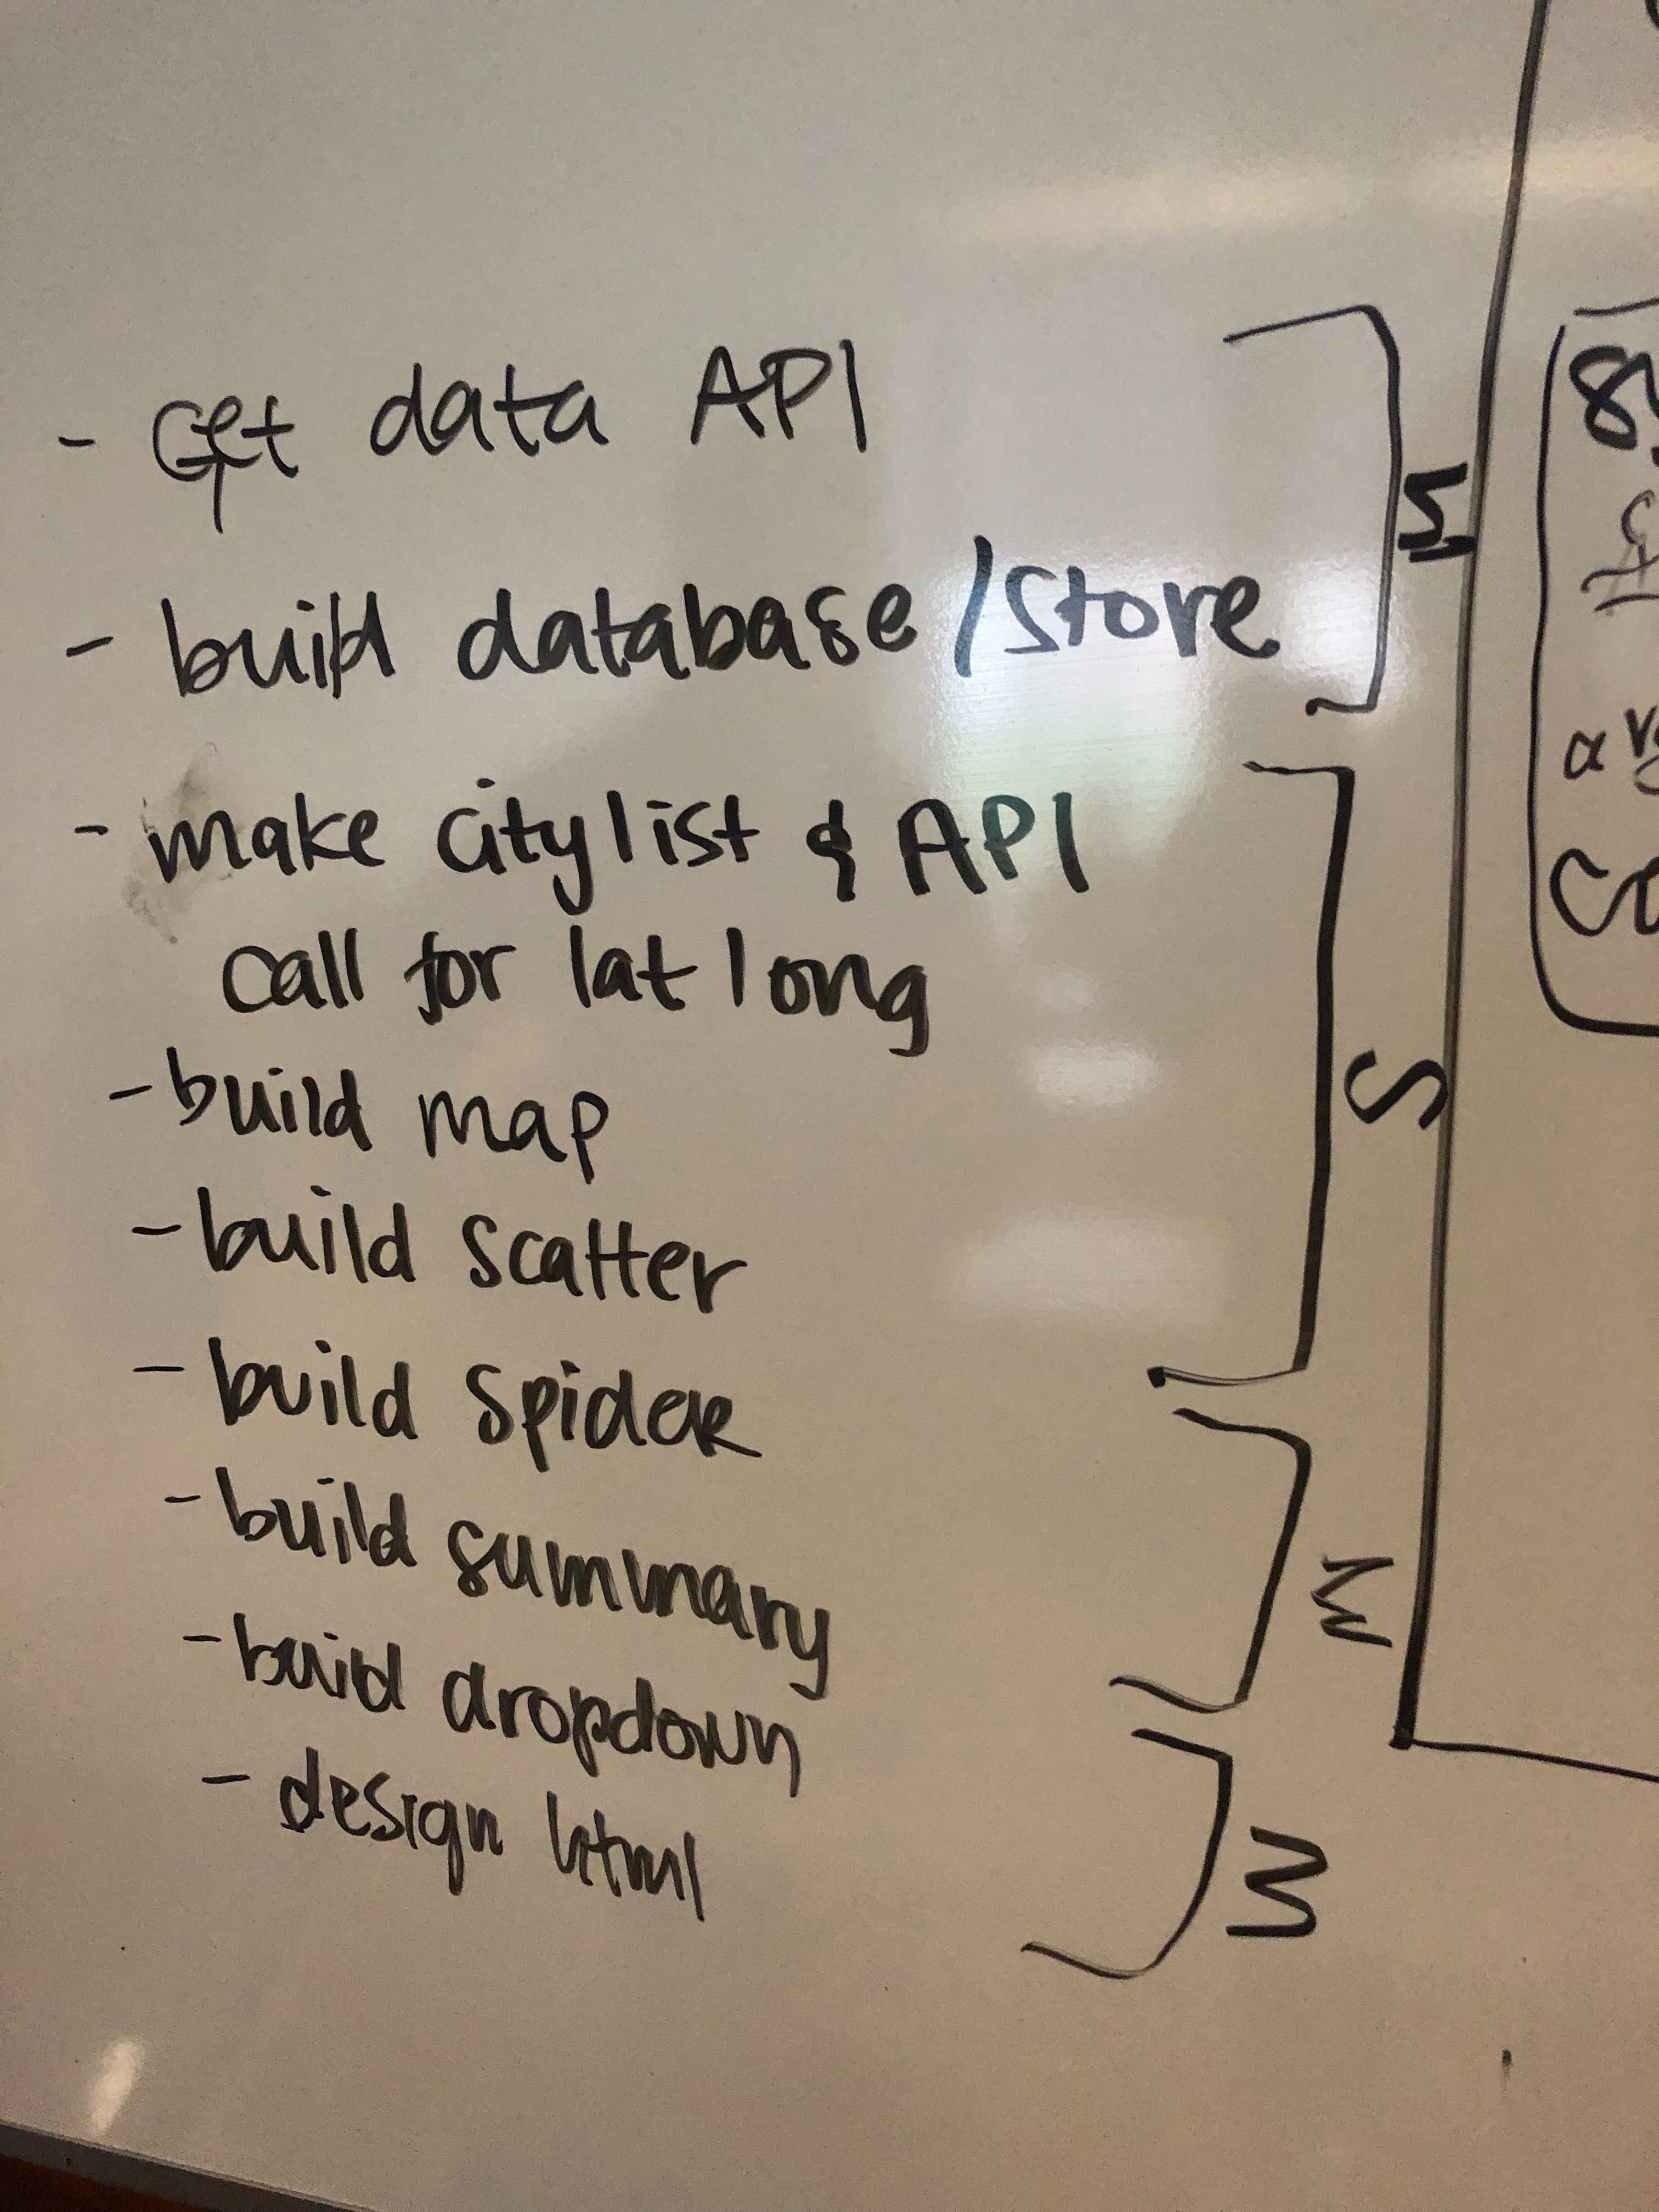 - Get data API
- build database/store
- make city list & API
call for lat long
- build map
- build scatter
- build spider
- build summary
- build dropdown
- design html
S